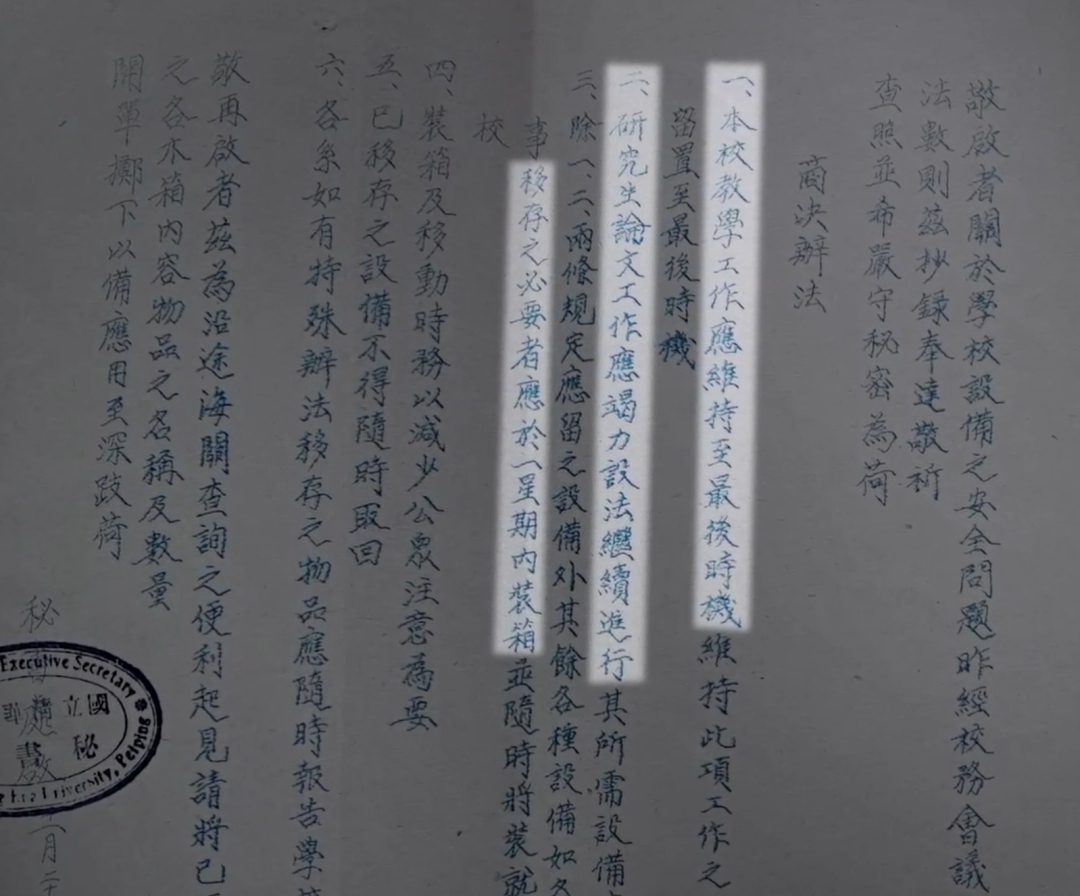 敬啟者關於學校設備之安全問題昨經校務會議
法數則茲抄録奉達敬祈
查照並希嚴守秘密為荷
商決辦法
一、本校教學工作應維持至最後時機維持此項工作之
留置至最後時機
二、研究生論文工作應竭力設法繼續進行其所需設備
三、除一、二、兩條規定應留之設備外其餘各種設備如各
事移存之必要者應於一星期內裝箱並隨時將裝就
校
四、裝箱及移動時務以減少公衆注意為要
五、已移存之設備不得隨時取回
六、各系如有特殊辦法移存之物品應隨時報告學
敬再啟者茲為沿途海關查詢之便利起見請將已
之各木箱內容物品之名稱及數量
開單擲下以備應用至深跂荷
秘
國立
秘
Executive Secretary
University, Peiping
月二十